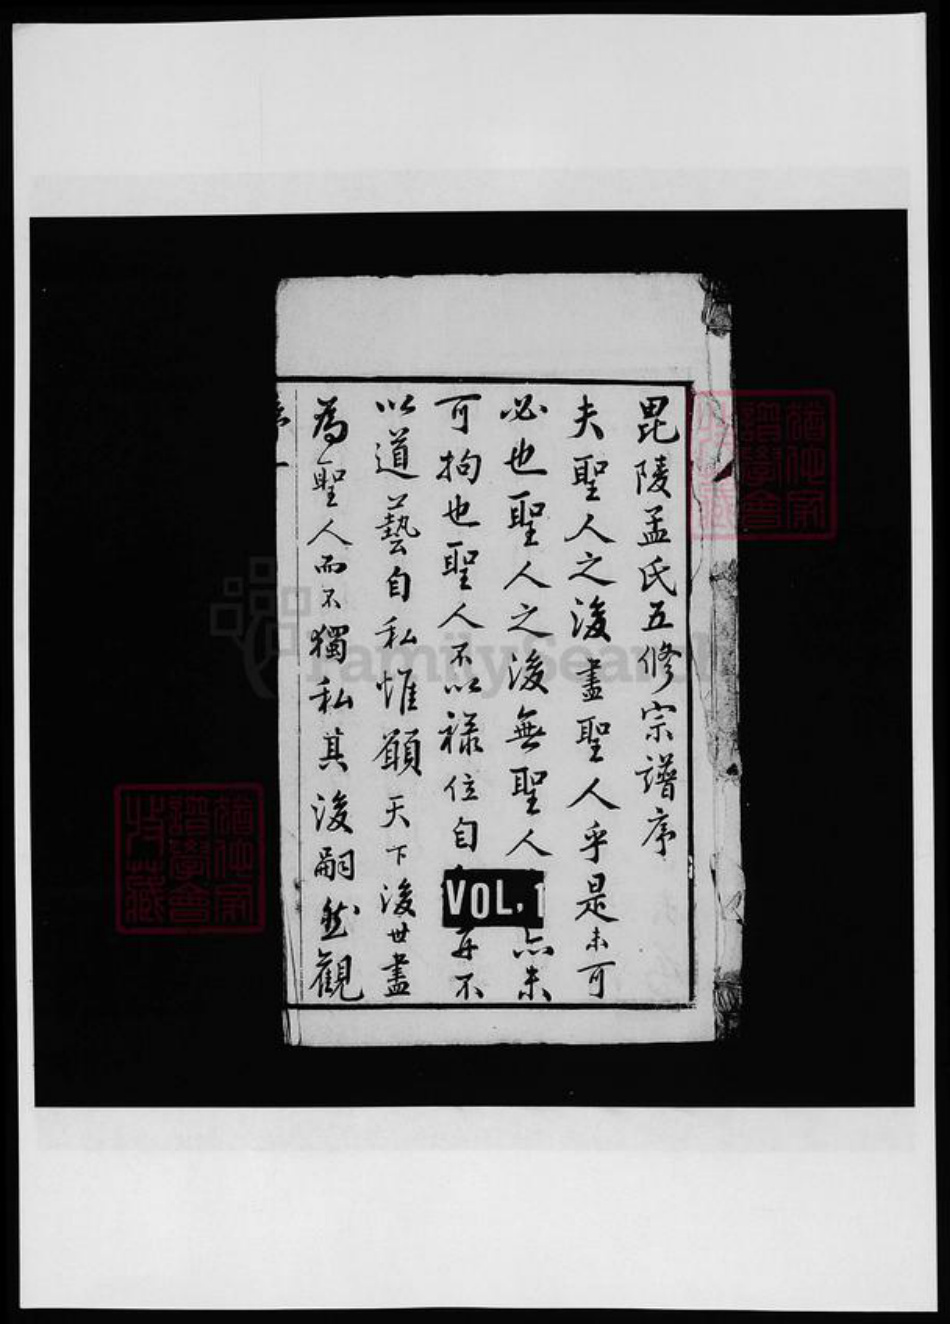 毘陵孟氏五修宗譜序
夫聖人之後盡聖人乎是未可
必也聖人之後無聖人亦未
可拘也聖人不以祿位自并不
以道藝自私惟願天下後世盡
為聖人而不獨私其後嗣然觀
VOL. 1
FamilySearch
譜學會
收藏